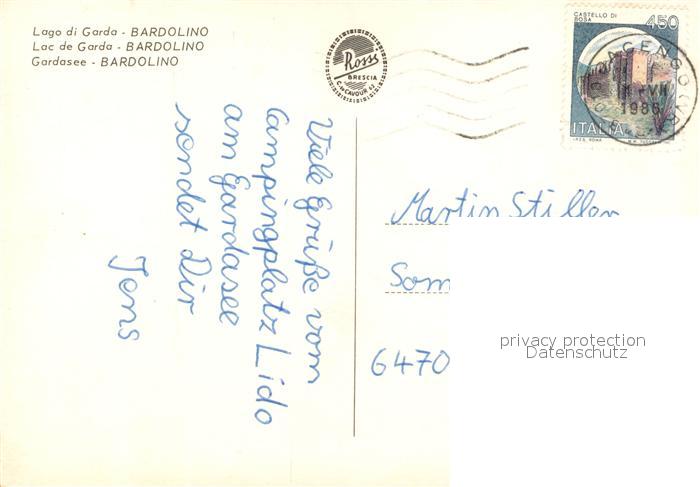 Lago di Garda - BARDOLINO
Lac de Garda - BARDOLINO
Gardasee - BARDOLINO
Rossi
BRESCIA
C. CAVOUR 42
CASTELLO DI
BOSA
450
1986
ITALIA
I.P.Z.S. ROMA
Viele Grüße vom
Campingplatz Lido
am Gardasee
sendet Dir
Jens
Martin Stiller
Som
6470
privacy protection
Datenschutz